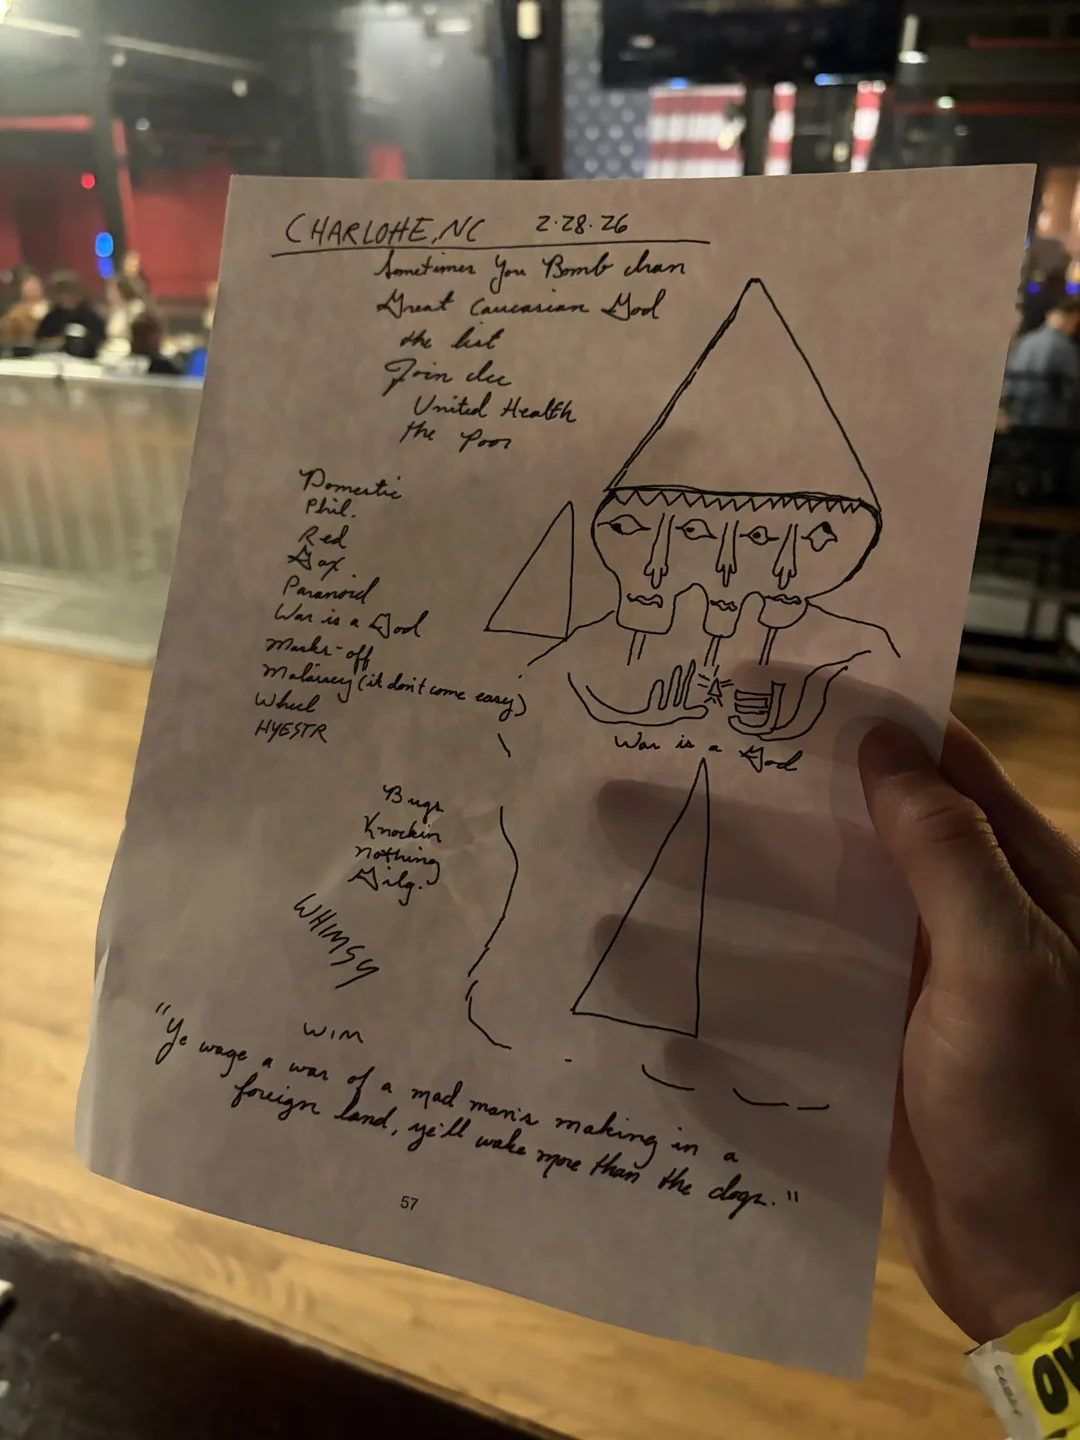 CHARLOHE, NC 2.28.26
Sometimes You Bomb Iran
Great Caucasian God
the list
Join Ice
United Health
the Poor
Domestic
Phil.
Red
Gax
Paranoid
War is a God
Masks-off
Malarkey (it don't come easy)
Wheel
HYESTR
War is a God
Bugs
Knockin
nothing
Gilg.
WHIMSY
WIM
"Ye wage a war of a mad man's making in a
foreign land, ye'll wake more than the dogs."
57